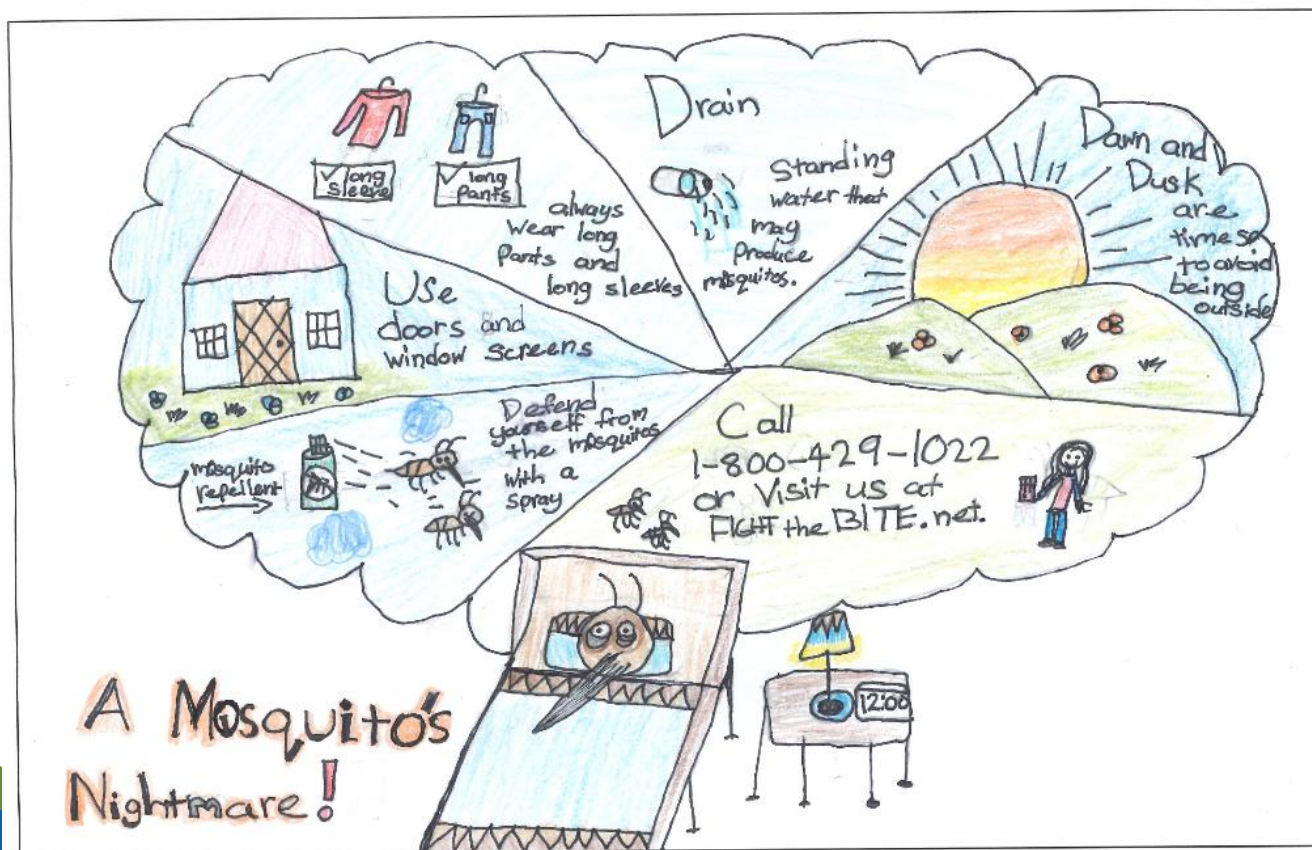 ✓ long
sleeve
✓ long
Pants
always
wear long
Pants and
long sleeves
Drain
Standing
water that
may
Produce
mosquitos.
Dawn and
Dusk
are
times
to avoid
being
outside
Use
doors and
window screens
mosquito
repellent
Defend
yourself from
the mosquitos
with a
spray
Call
1-800-429-1022
or Visit us at
FIGHT the BITE.net.
12:00
A Mosquito's
Nightmare!